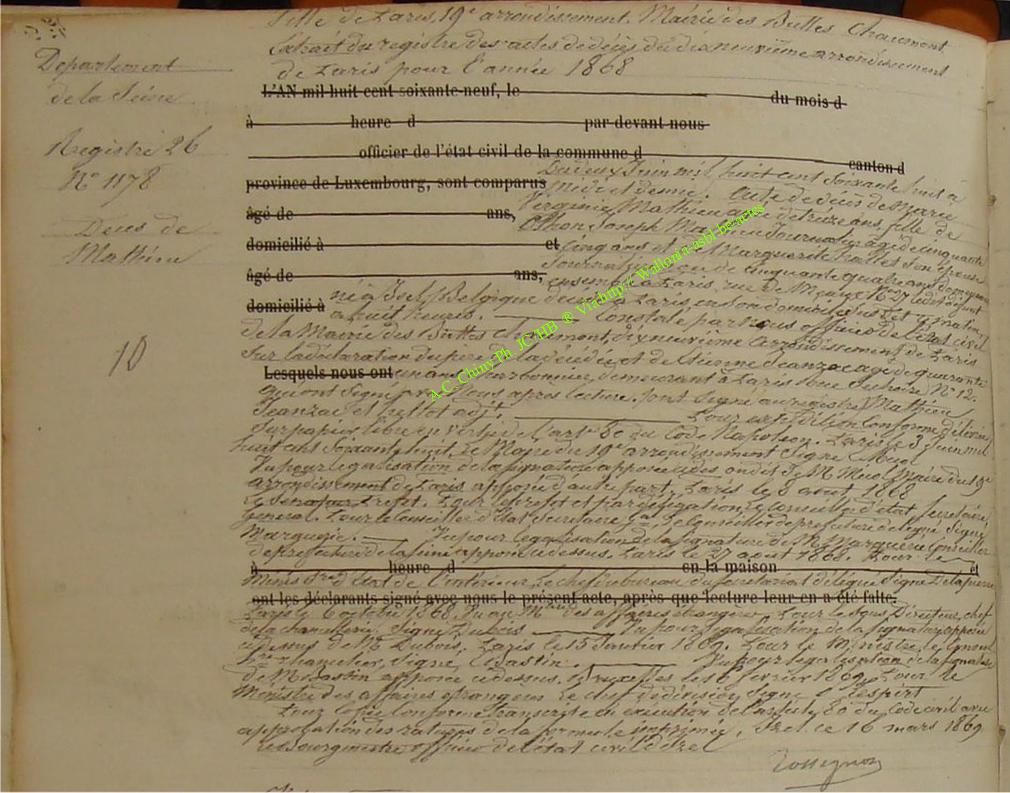 Ville de Paris, 19e arrondissement. Mairie des Buttes Chaumont
Extrait du registre des actes de décès du dix neuvième arrondissement
de Paris pour l'année 1868
Département
de la Seine
Registre 26
N° 1178
Décès de
Mathieu
10
L'AN mil huit cent soixante-neuf, le du mois d
à heure d par devant nous
officier de l'état civil de la commune d canton d
province de Luxembourg, sont comparus Du deux Juin mil huit cent soixante huit à
midi et demie. Acte de décès de Marie
âgé de ans, Virginie Mathieu agée de treize ans, fille de
Joseph Mathieu Journalier agé de cinquante
domicilié à et cinq ans et de Marguerite son épouse
Journalière agée de cinquante quatre ans demeurant
âgé de ans, ensemble à Paris, rue de Meaux N° 27
domicilié à née à Izel (Belgique) décédée à Paris, en son domicile
à huit heures. Constaté par Nous officier de l'état civil
de la Mairie des Buttes Chaumont, dix neuvième arrondissement de Paris
Sur la déclaration du père de la décédée et de Etienne Jeanzac agé de quarante
Lesquels nous ont un ans charbonnier, demeurant à Paris N° 12.
qui ont signé avec Nous après lecture. Sont signé au registre, Mathieu
Jeanzac et adjt. Pour expédition conforme délivrée
Sur papier libre en vertu de l'art. 80 du Code Napoléon. Paris le 3 Juin mil
huit cent soixante huit, le Maire du 19e arrondissement Signé
Vu pour légalisation de la signature apposée de M. Maire du 19e
arrondissement de Paris apposée d'autre part. Paris le 8 août 1868
Le Sénateur Préfet. Pour le préfet et par délégation, le Conseiller d'état, secrétaire
Général. Pour le Conseiller d'état Secrétaire Gal. Le Conseiller de préfecture délégué, Signé
Marguerie. Vu pour légalisation de la signature de M. Marguerie Conseiller
de préfecture de la Seine apposée ci dessus. Paris le 27 août 1868. Pour le
à heure d en la maison et
Ministre d'état de l'intérieur, le chef du bureau du secrétariat délégué Signé Delapierre
ont les déclarants signé avec nous le présent acte, après que lecture leur en a été faite.
Paris le 6 octobre 1868. des affaires étrangères, Pour le Sous Directeur, chef
de la chancellerie, Signé Dubois Vu pour légalisation de la signature apposée
ci dessus de M. Dubois. Paris le 15 Janvier 1869. Pour le Ministre, le
chancelier, Signé Bastin. Vu pour légalisation de la signature
de M. Bastin apposée ci dessus. Bruxelles le février 1869. Pour le
Ministre des affaires étrangères le chef de division, Signé
Pour copie conforme transcrite en exécution de l'article 80 du Code civil avec
approbation des ratures de la formule imprimée. Izel, ce 16 mars 1869
Le Bourgmestre officier de l'état civil d'Izel
Rossignon
A.C. Chiny Ph JC HB ® Via http://Wallonia-asbl-be-actes